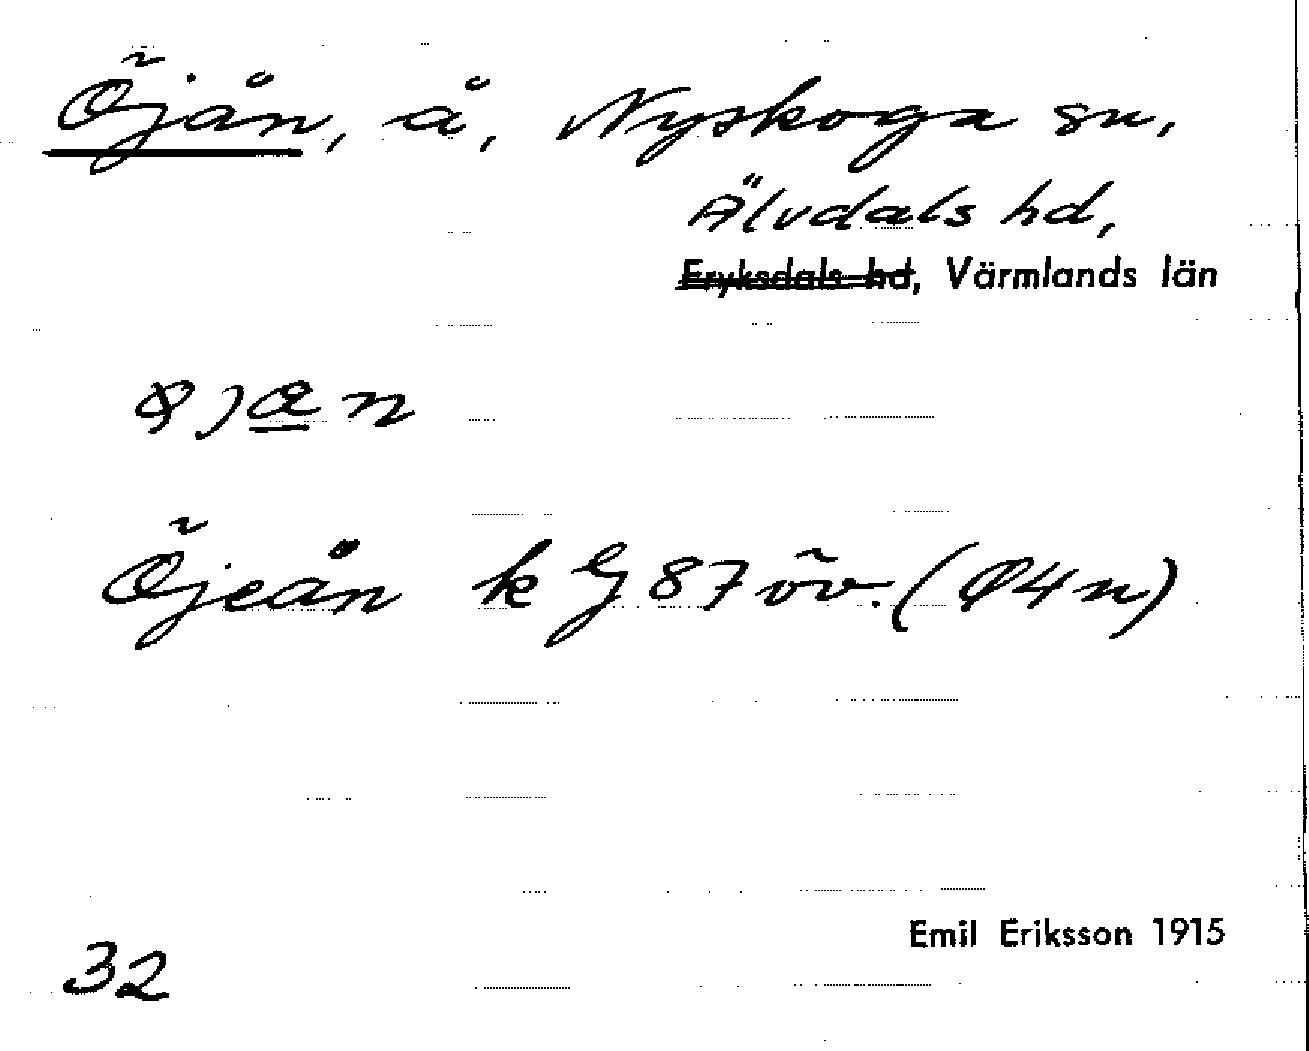 Öjån, å, Nyskoga sn,
Älvdals hd,
Fryksdals hd, Värmlands län
Öjeån k G 87 öv. (Ø4n)
Emil Eriksson 1915
32